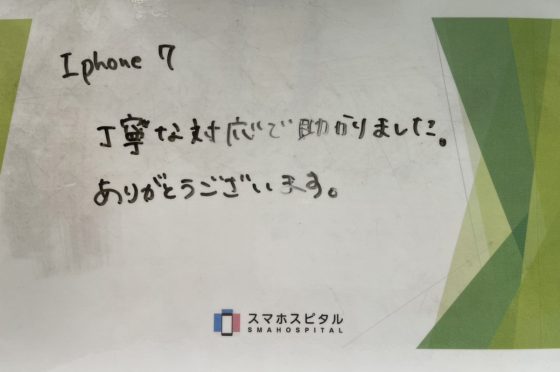 Iphone 7
丁寧な対応で助かりました。
ありがとうございます。
スマホスピタル
SMAHOSPITAL